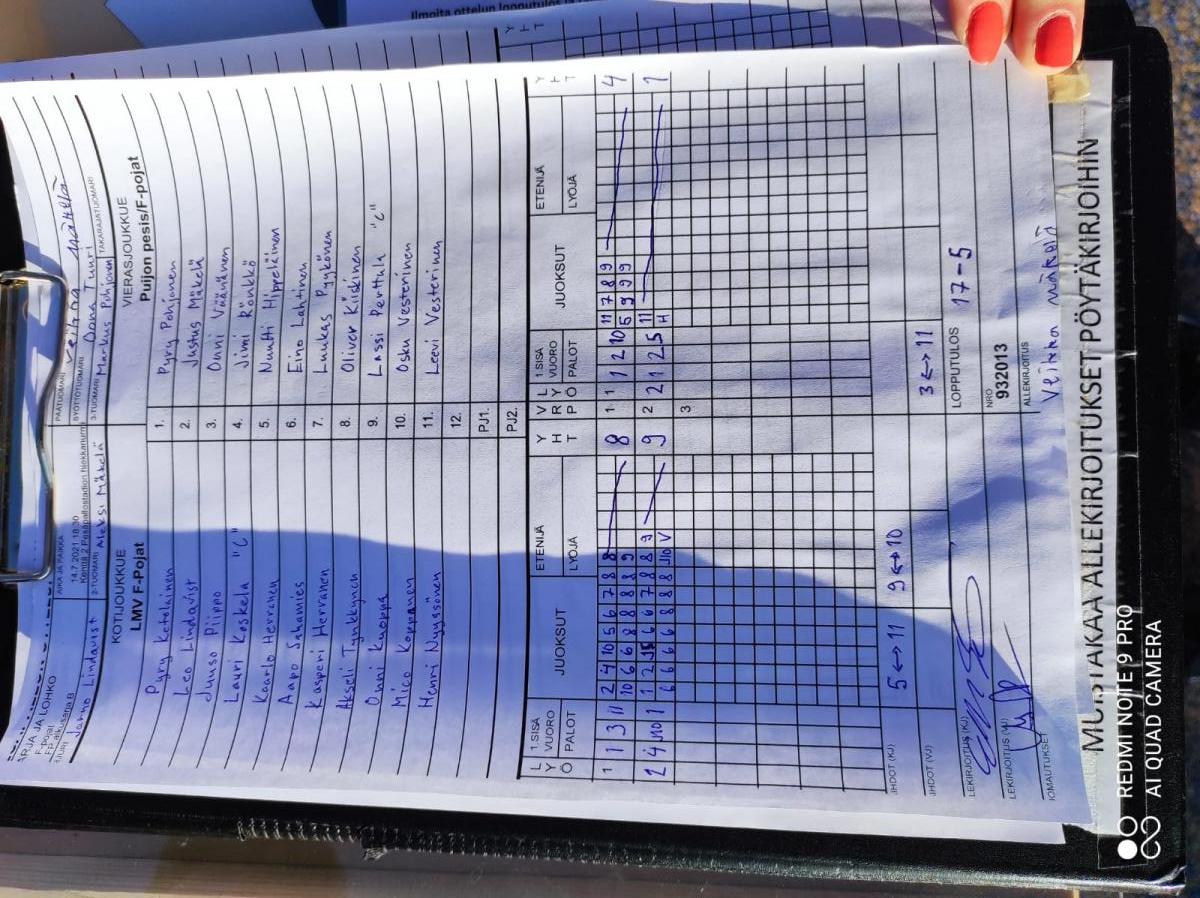 Ilmoita ottelun lopputulos
ARJA JA LOHKO
AIKA JA PAIKKA
PÄÄTUOMARI
F-pojat
14.7.2021 18.30
Kenttä 2 Pesäpallostadion hiekkanurmi
SYÖTTÖTUOMARI
Oona Tuuri
Jarmo Lindqvist
2-TUOMARI Aleksi Mäkelä
3-TUOMARI Markus Pohjonen
TAKARAJATUOMARI
KOTIJOUKKUE
LMV F-Pojat
VIERASJOUKKUE
Puijon pesis/F-pojat
Pyry Ketolainen 1. Pyry Pohjonen
Leo Lindqvist 2. Justus Mäkelä
Juuso Piippo 3. Onni Väänänen
Lauri Koskela "C" 4. Jimi Rönkkö
Kaarlo Herranen 5. Nuutti Hippeläinen
Aapo Sahamies 6. Eino Lahtinen
Kasperi Herranen 7. Luukas Pyykönen
Akseli Tynkkynen 8. Oliver Kiiskinen
Onni Kuoppa 9. Lassi Perttula "C"
Mico Koppanen 10. Osku Vesterinen
Henri Nyyssönen 11. Leevi Vesterinen
12.
PJ1.
PJ2.
L Y Ö 1.SISÄ VUORO PALOT JUOKSUT ETENIJÄ LYÖJÄ Y H T V R P L Y Ö 1.SISÄ VUORO PALOT JUOKSUT ETENIJÄ LYÖJÄ Y H T
1 1 3 11 2 4 10 5 6 7 8 8 8 1 1 1 2 10 11 7 8 9 4
10 6 6 8 8 8 8 9 5 9 9 9
2 4 10 1 1 2 6 6 7 8 8 9 9 2 2 1 2 5 11 1
6 6 6 6 8 8 8 10 V H
3
5 ↔ 11 9 ↔ 10 3 ↔ 11
LOPPUTULOS 17-5
NRO
932013
ALLEKIRJOITUS
Veikka Mäkelä
MUISTAKAA ALLEKIRJOITUKSET PÖYTÄKIRJOIHIN
REDMI NOTE 9 PRO
AI QUAD CAMERA